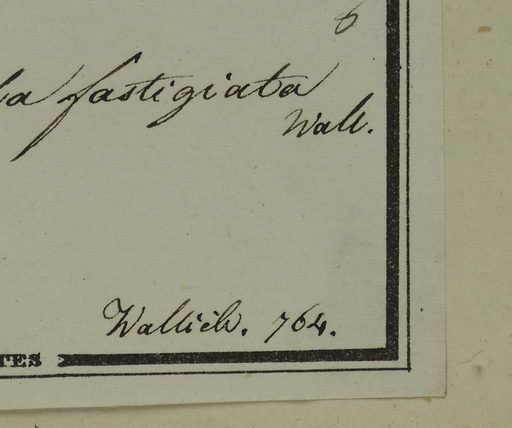 6
la fastigiata
Wall.
Wallich. 764.
TES